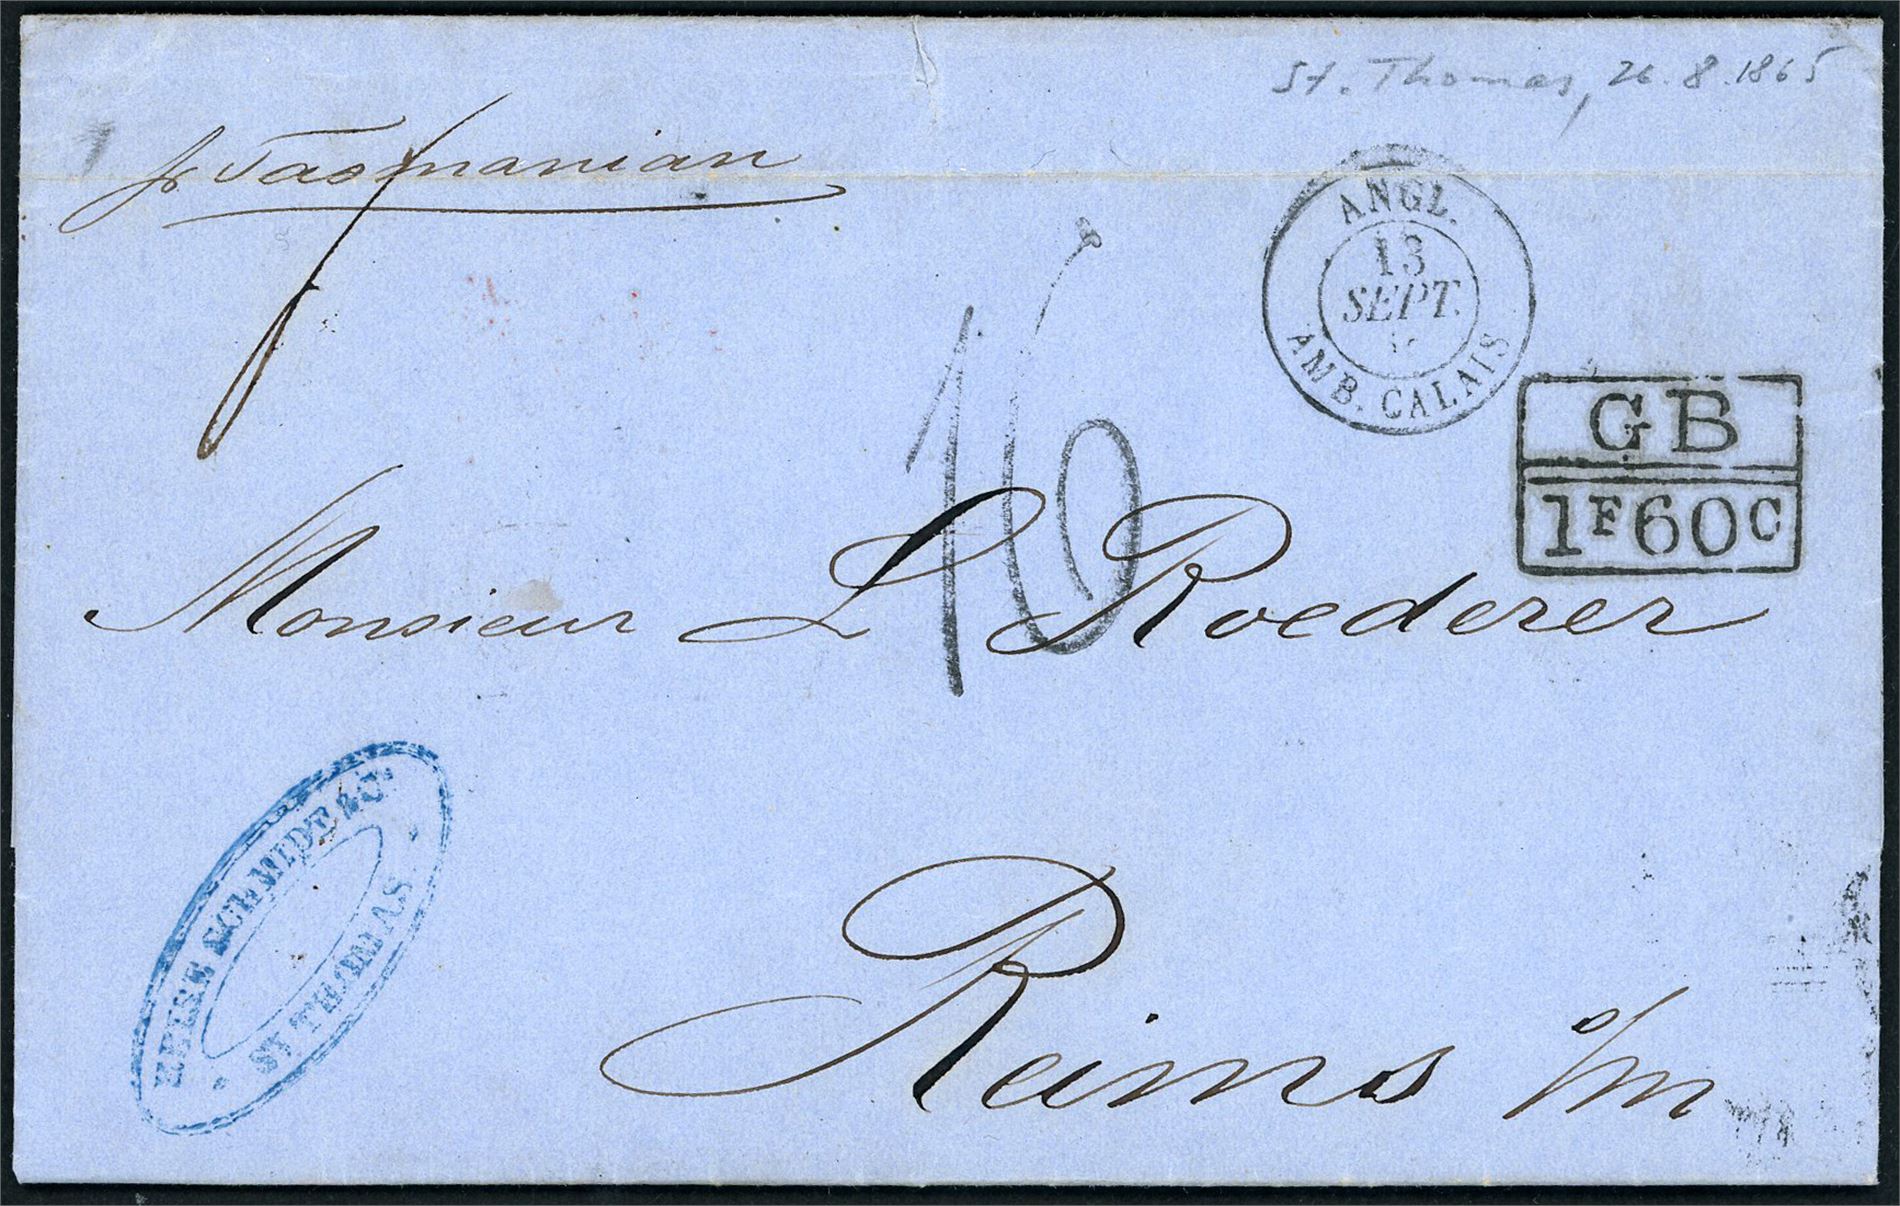 St. Thomas, 26.8.1865
pr Tasmanian
ANGL.
13
SEPT.
AMB. CALAIS
GB
1F60C
16
Monsieur L Roederer
Reims s/m
ST THOMAS